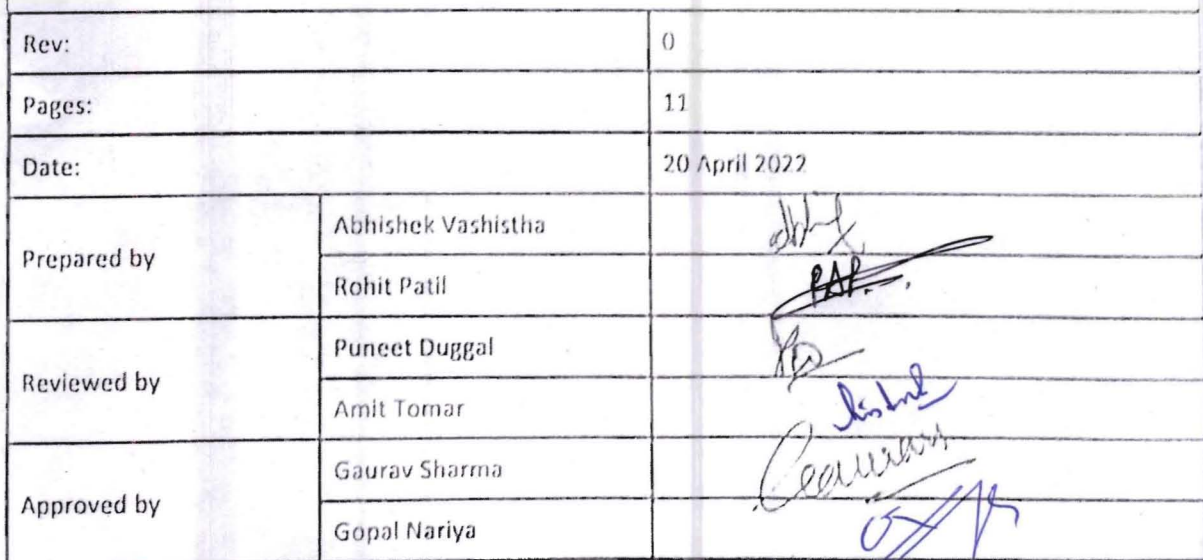 Rev: 0
Pages: 11
Date: 20 April 2022
Prepared by
Abhishek Vashistha
Rohit Patil PAP.
Reviewed by
Puneet Duggal
Amit Tomar
Approved by
Gaurav Sharma
Gopal Nariya